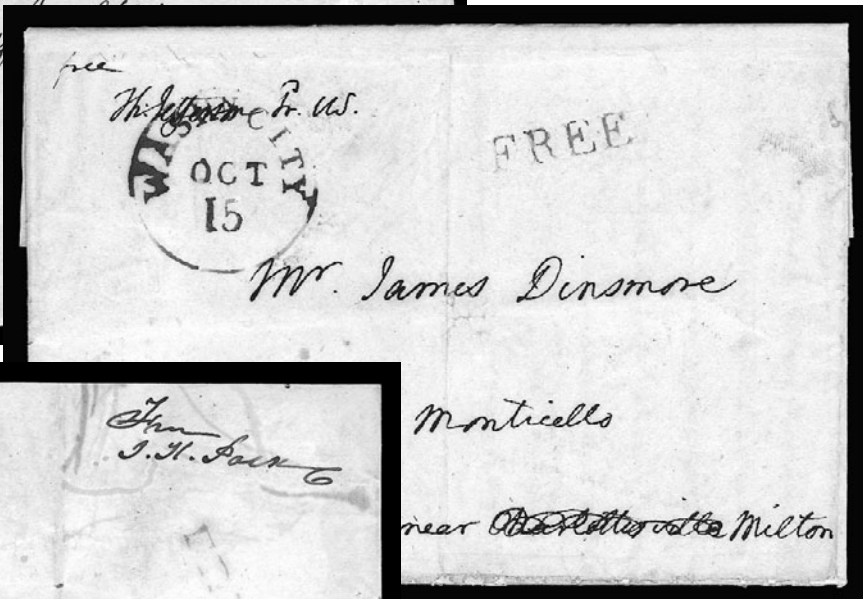 free
Th: Jefferson Pr. US.
WASH. CITY
OCT
15
FREE
Mr. James Dinsmore
Monticello
near Charlottesville Milton
Free